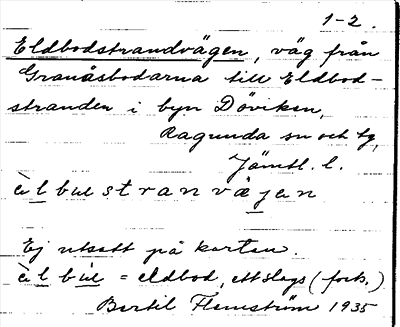 1-2.
Eldbodstrandvägen, väg från
Granåsbodarna till Eldbod-
stranden i byn Döviken,
Ragunda sn och tg,
Jämtl. l.
èlbuɩstranvajen
Ej utsatt på kartan.
èlbuɩ = eldbod, ett slags (fork.)
Bertil Flemström 1935